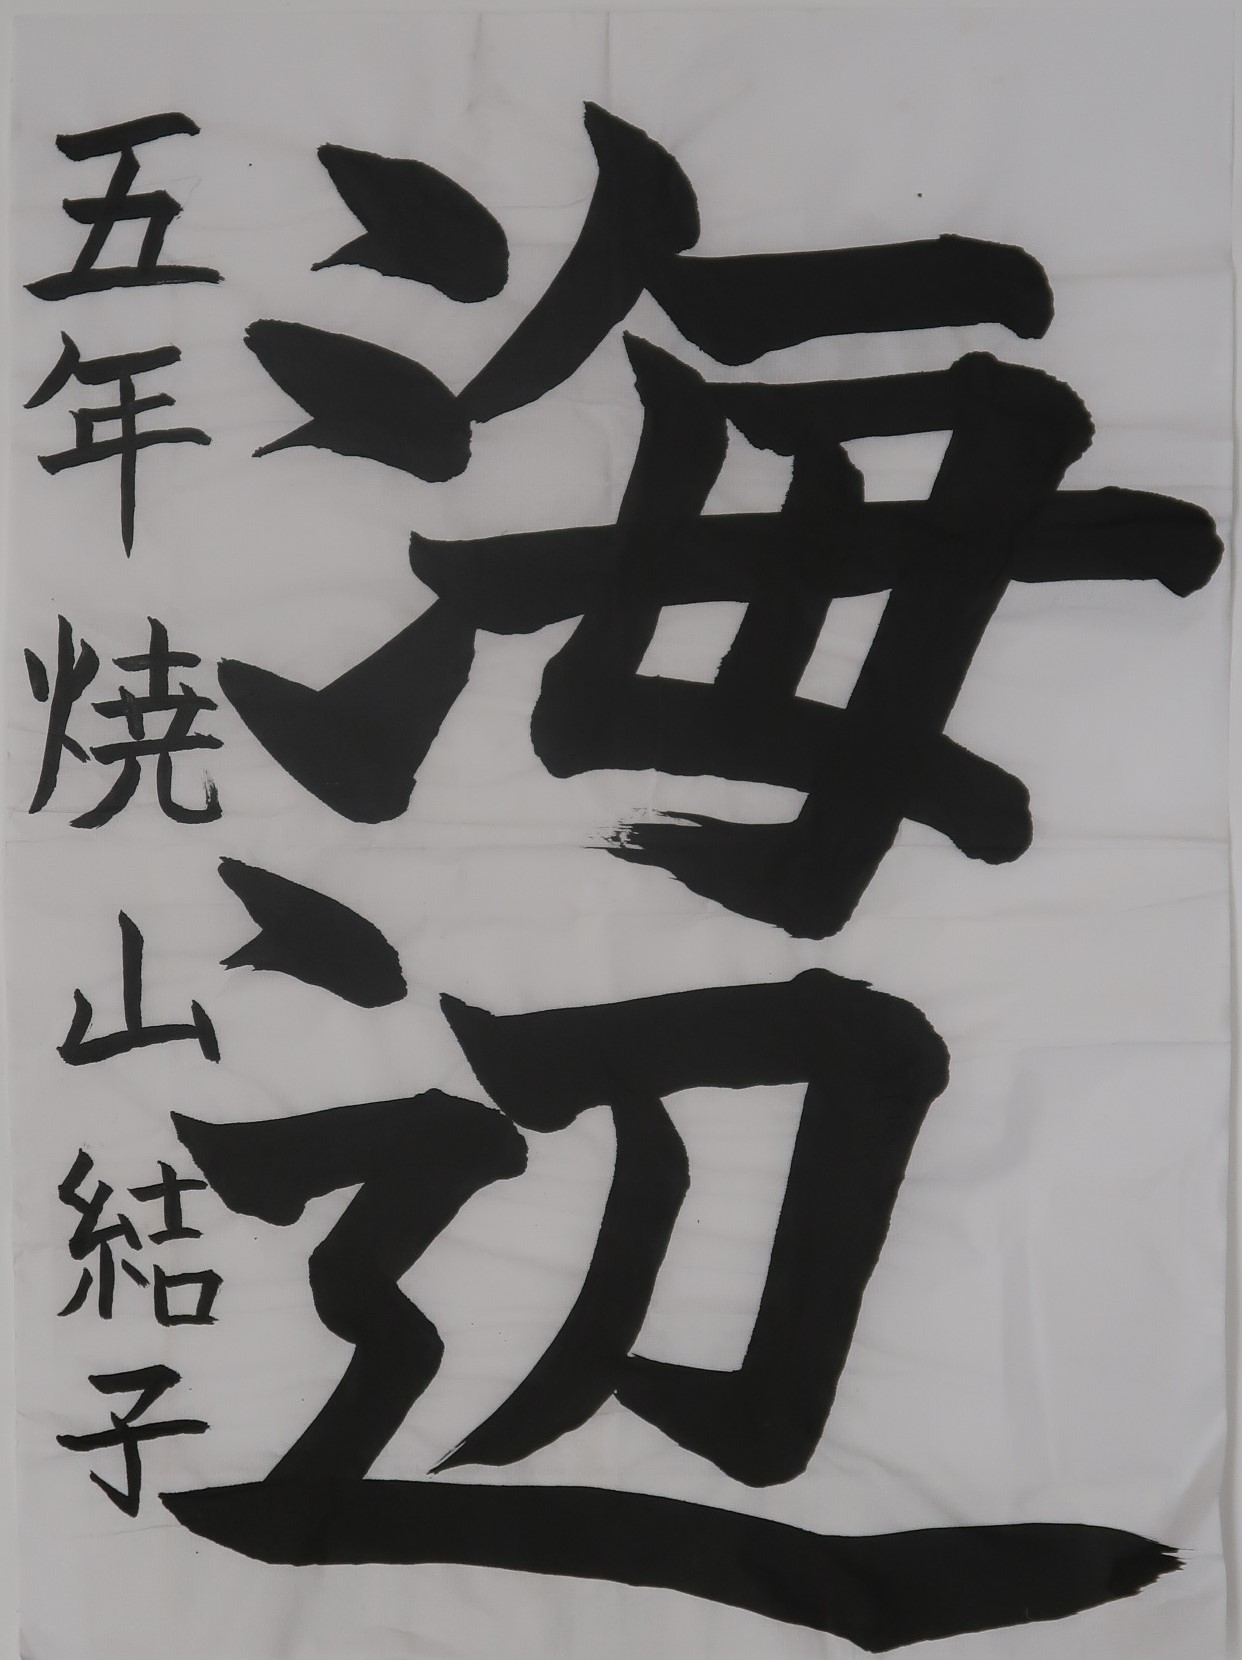 海辺
五年 焼山結子